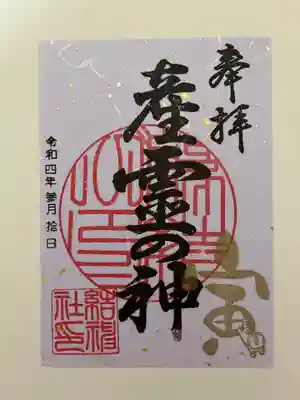 奉拝
産靈の神
寅
令和四年 参月 拾日
結神社印